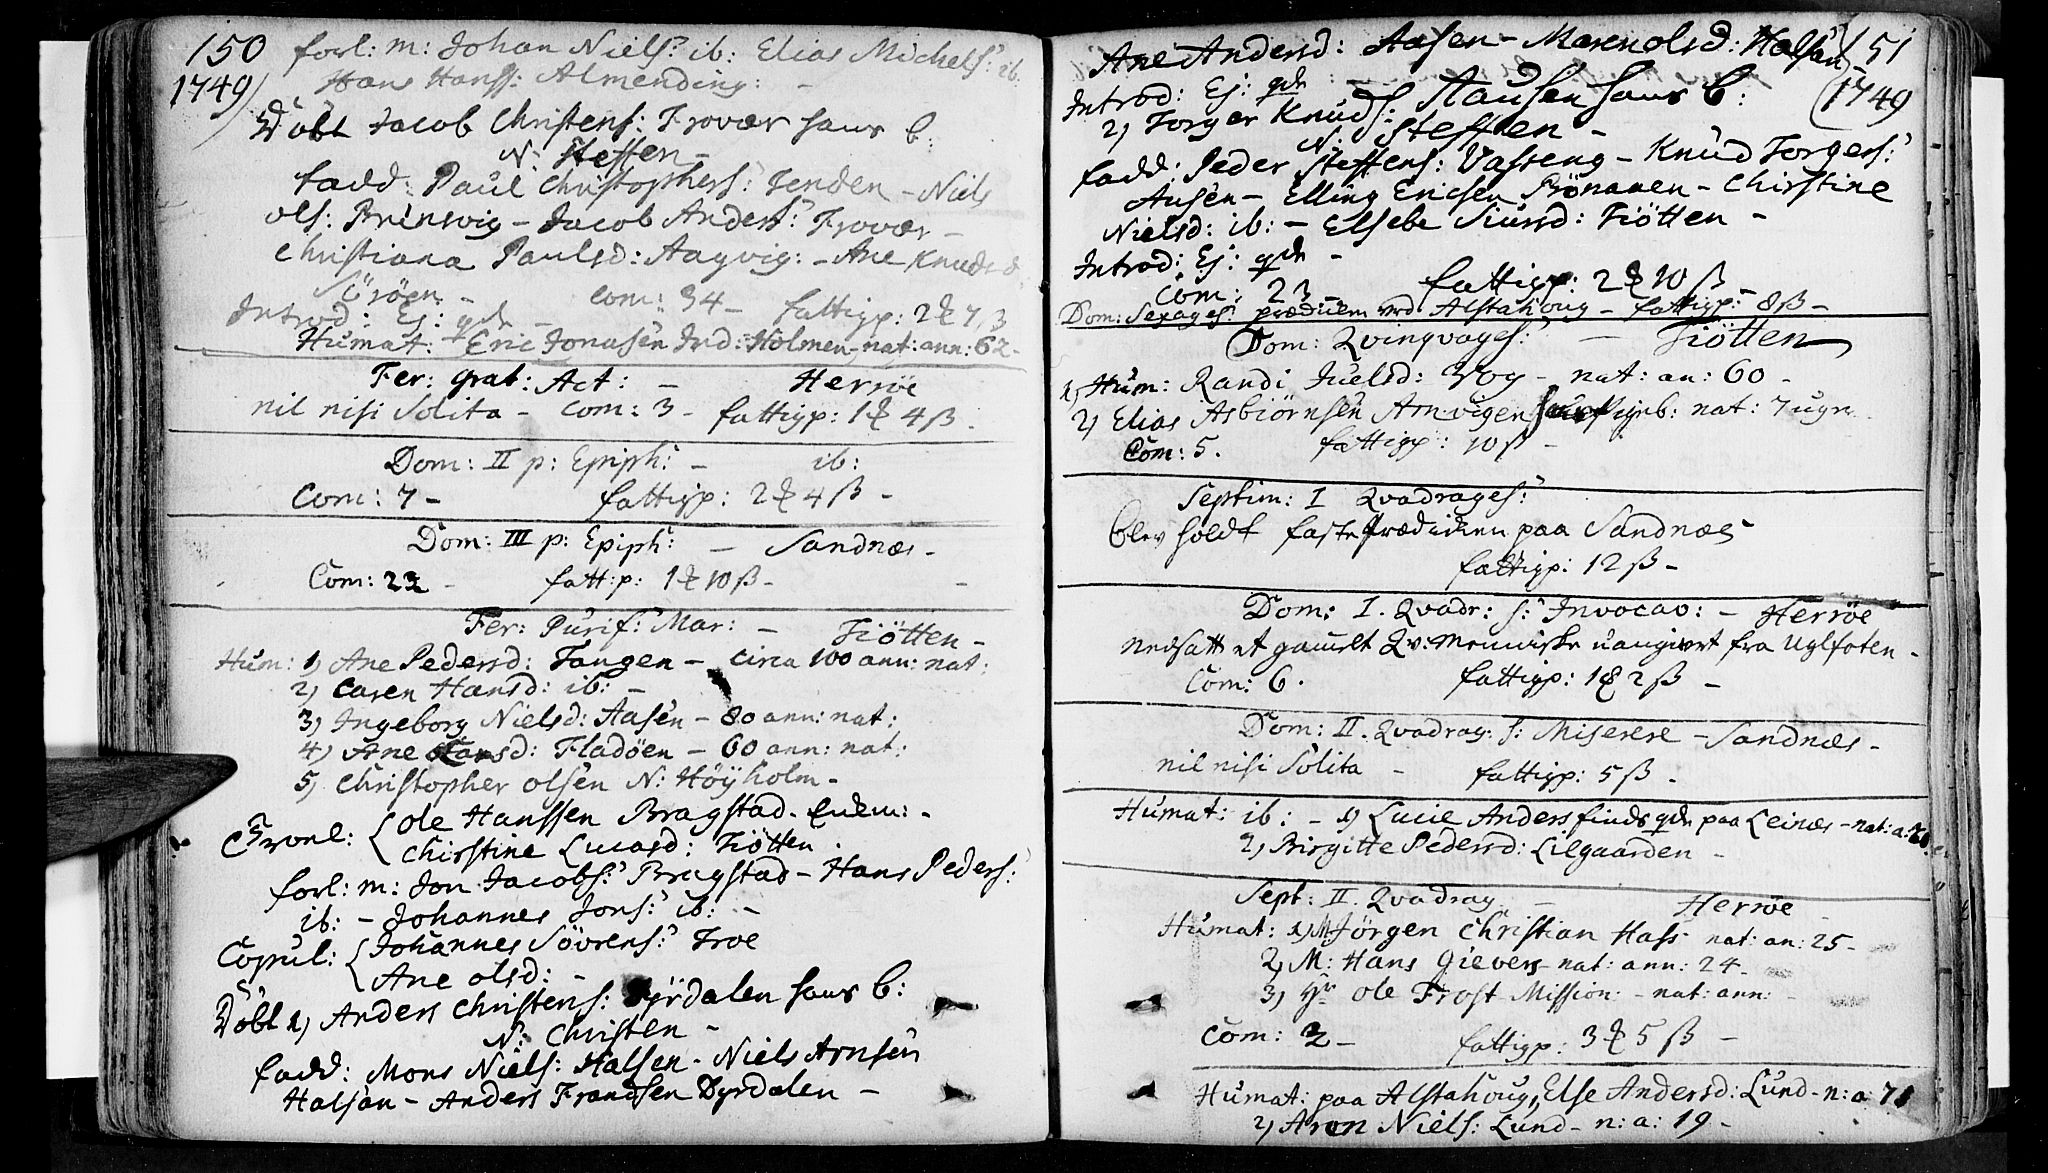 150
1749)
forl: m: Johan Niels: ib: Elias Michels: ib.
Hans Hanss: Almending: -
Döbt Jacob Christens: Trovær hans b:
N: Steffen -
fadd: Paul Christophers: Tenden - Niels
ols: Brinsvig - Jacob Anders: Trovær -
Christiana Paulsd: Aagvig: - Ane Knudsd
Söröen - Com: 34 - fattigp: 2 7,3
Introd: Ej: qdr -
Humat: Eric Jonasen Ind: Holmen - nat: ann: 62 -
Fer: Grat: Act: - Herröe
nil nisi Solita - Com: 3 - fattigp: 1 4 ß -
Dom: II p: Epiph: - ib:
Com: 7 - fattigp: 2 4 ß -
Dom: III p: Epiph: - Sandnæs -
Com: 22 - fatt:p: 1 10 ß -
Fer: Purif: Mar: - Tiötten -
Hum: 1) Ane Pedersd: Tangen - circa 100 ann: nat:
2) Caren Hansd: ib: -
3) Ingeborg Nielsd: Aasen - 80 ann: nat:
4) Ane Larsd: Fladöen - 60 ann: nat:
5) Christopher olsen N: Höÿholm -
Trovl: { Ole Hanssen Bragstad -
Chirstine Lucasd: Tiötten -
forl: m: Jon Jacobs: Bragstad - Hans Peders:
ib: - Johannes Jons: ib: -
Copul: { Johannes Sövrens: Troe
Ane olsd: -
Döbt 1) Anders Christens: Dyrdalen hans b:
N: Christen -
fadd: Mons Niels: Halsen - Niels Arnsen
Halsan - Anders Frandsen Dyrdalen -
Ane Andersd: Aasen - Maren olsd: Halsan
151
(1749
Introd: Ej: qdr
2) Torger Knuds: Hausen hans b:
N: Steffen -
fadd: Peder Steffens: Vasseng - Knud Torgers:
Ausen - Elling Ericsen Rönanen - Chirstine
Nielsd: ib: - Elsebe Siursd: Tiötten -
Introd: Ej: qdr -
Com: 23 - fattigp: 2 10 ß -
Dom: Sexages: prædiken ved Alstahoug - fattigp: 8 ß -
Dom: Qvinqvages: - Tiötten
1) Hum: Randi Juelsd: Vog - nat: an: 60 -
2) Elias Asbiörnsen Amvigen nat: 7 ugr
Com: 5. fattigp: 10 ß -
Septim: I Qvadrages:
blev holdt faste Prædiken paa Sandnæs
fattigp: 12 ß -
Dom: I. Qvadr: s: Invocav: - Herröe
nedsatt et gamelt Qv: Menniske uangivet fra Uglfoten -
Com: 6. fattigp: 1 2 ß -
Dom: II. Qvadrag: s: Miserere - Sandnæs -
nil nisi Solita - fattigp: 5 ß -
Humat: ib: - 1) Lucie Anders finds qdr paa Leinæs - nat: a:
2) Birgitte Pedersd: Lilgaarden -
Sept: II. Qvadrag - Herröe
Humat: 1) M Jörgen Christian Hass nat: an: 25 -
2) M: Hans Gievers - nat: ann: 24 -
3) Hr ole Frost Mission: - nat: ann: -
Com: 2 - fattigp: 3 5 ß -
Humat: paa Alstahoug, Else Andersd: Lund - n: a: 71
2) Aron Niels: Lund - n: a: 19 -